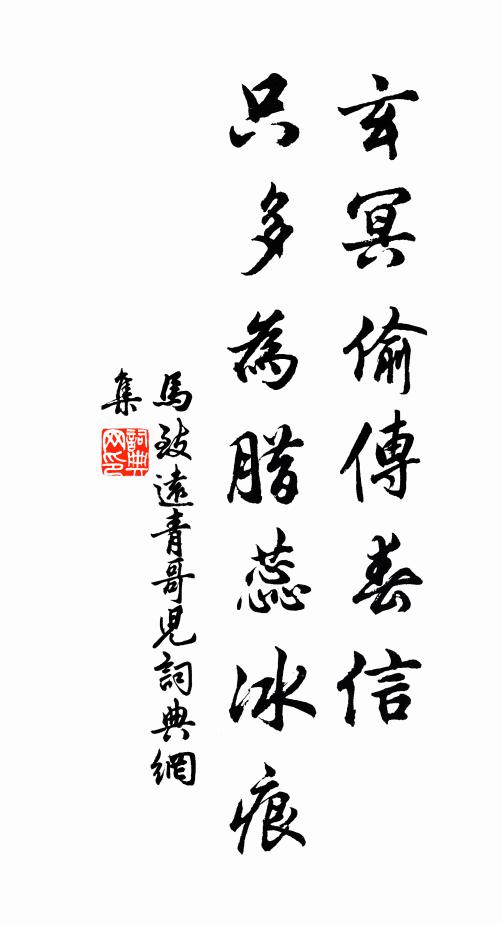 玄冥偷傳春信
只多為腊蕊冰痕
馬致遠青哥児詞典網
集
詞典
网印